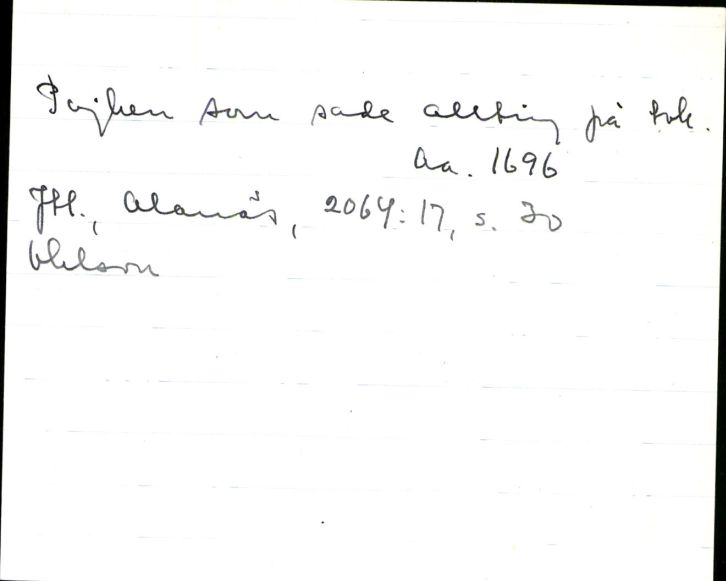 Pojken som sade allting på tok.
Aa. 1696
JH., Alanäs, 2064:17, s. 30